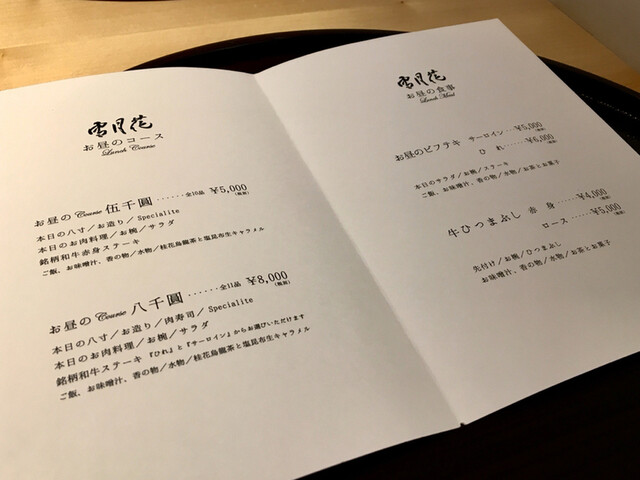 雪月花
お昼のコース
Lunch Course
お昼の Course 伍千圓 ‥‥‥ 全10品 ¥5,000
(税別)
本日の八寸／お造り／Specialite
本日のお肉料理／お椀／サラダ
銘柄和牛赤身ステーキ
ご飯、お味噌汁、香の物／水物／桂花烏龍茶と塩昆布生キャラメル
お昼の Course 八千圓 ‥‥‥ 全11品 ¥8,000
(税別)
本日の八寸／お造り／肉寿司／Specialite
本日のお肉料理／お椀／サラダ
銘柄和牛ステーキ『ひれ』と『サーロイン』からお選びいただけます
ご飯、お味噌汁、香の物／水物／桂花烏龍茶と塩昆布生キャラメル
雪月花
お昼の食事
Lunch Meal
お昼のビフテキ サーロイン ‥‥ ¥5,000
(税別)
ひれ ‥‥‥ ¥6,000
(税別)
本日のサラダ／お椀／ステーキ
ご飯、お味噌汁、香の物／水物／お茶とお菓子
牛ひつまぶし 赤身 ‥‥‥ ¥4,000
(税別)
ロース ‥‥‥ ¥5,000
(税別)
先付け／お椀／ひつまぶし
お味噌汁、香の物／水物／お茶とお菓子